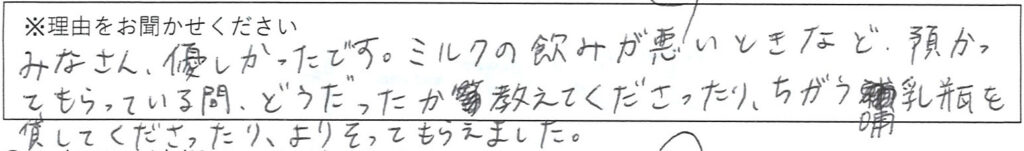 ※理由をお聞かせください
みなさん、優しかったです。ミルクの飲みが悪いときなど、預かっ
てもらっている間、どうだったか教えてくださったり、ちがう哺乳瓶を
貸してくださったり、よりそってもらえました。